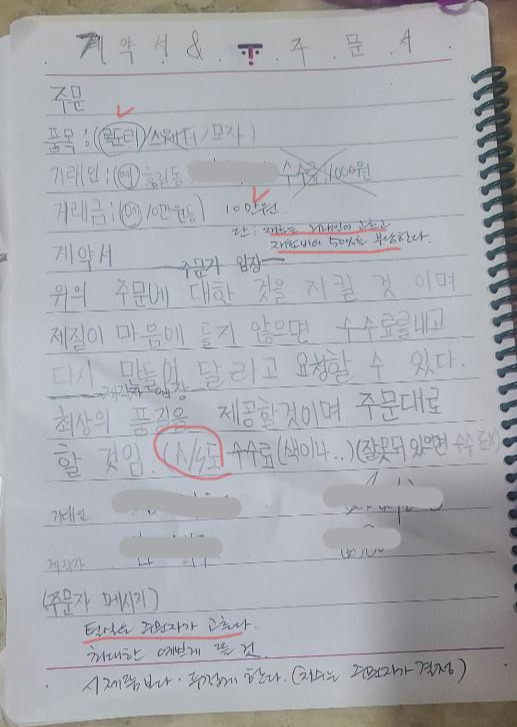 계약서 & 주문서
주문
품목: (목도리/스웨터/모자)
거래인: (예) 홍길동 수수료: 1000원
거래금: (예/10만원등) 10만원
단: 재료는 의뢰인이 고르고
재료비의 50%는 부담한다.
계약서
주문자 입장
위의 주문에 대한 것을 지킬 것 이며
제질이 마음에 들지 않으면 수수료를내고
다시 만들어 달라고 요청할 수 있다.
제작자 입장
최상의 품질을 제공할것이며 주문대로
할 것임. (A/S도 수수료 (색이나..) (잘못되 있으면 수수료X)
거래인
제작자
(주문자 메시지)
털실은 주문자가 고른다.
최대한 예쁘게 뜰 것.
시제품보다 두껍게 한다. (치수는 주문자가 결정)